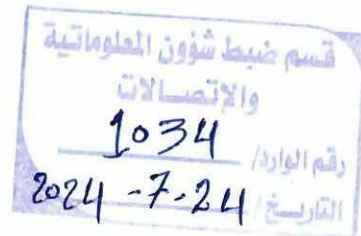 قسم ضبط شؤون المعلوماتية
والإتصالات
رقم الوارد/ 1034
التاريخ/ 2024 -7-24